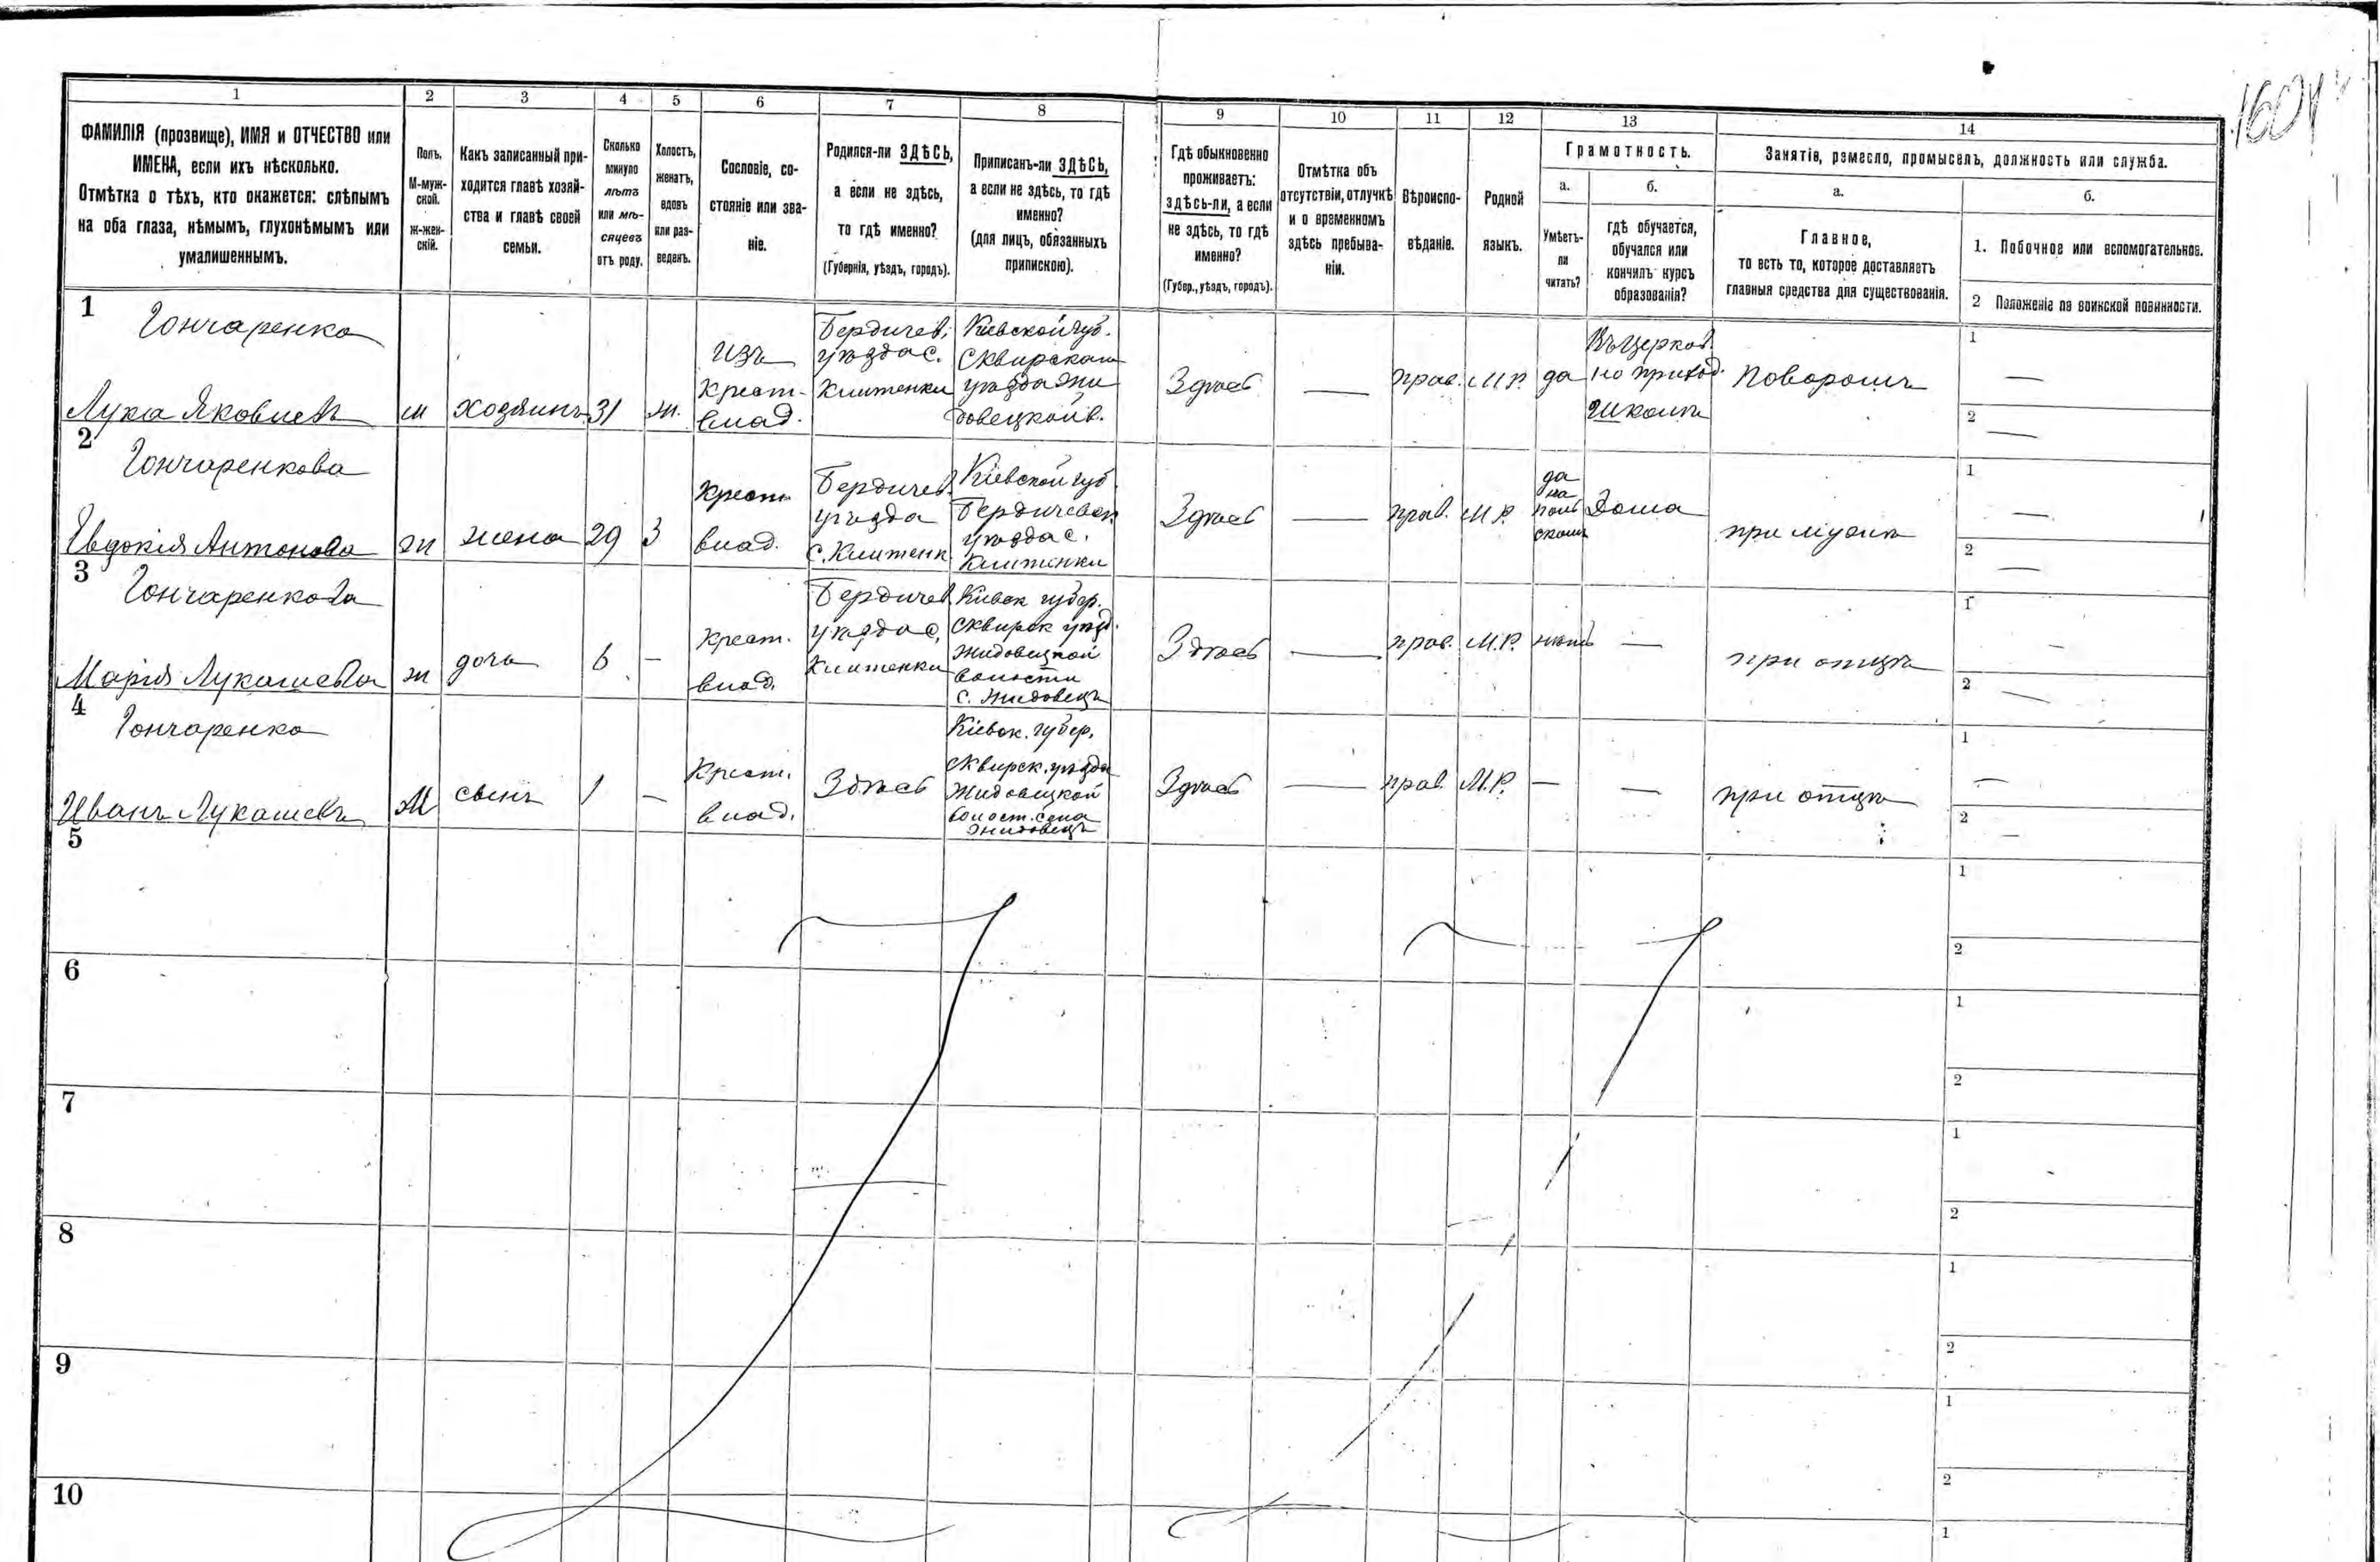 160
1 2 3 4 5 6 7 8 9 10 11 12 13 14
ФАМИЛІЯ (прозвище), ИМЯ и ОТЧЕСТВО или
ИМЕНА, если ихъ нѣсколько.
Отмѣтка о тѣхъ, кто окажется: слѣпымъ
на оба глаза, нѣмымъ, глухонѣмымъ или
умалишеннымъ.
Полъ.
М-муж-
ской.
ж-жен-
скій.
Какъ записанный при-
ходится главѣ хозяй-
ства и главѣ своей
семьи.
Сколько
минуло
лѣтъ
или мѣ-
сяцевъ
отъ роду.
Холостъ,
женатъ,
вдовъ
или раз-
веденъ.
Сословіе, со-
стояніе или зва-
ніе.
Родился-ли ЗДѢСЬ,
а если не здѣсь,
то гдѣ именно?
(Губернія, уѣздъ, городъ).
Приписанъ-ли ЗДѢСЬ,
а если не здѣсь, то гдѣ
именно?
(для лицъ, обязанныхъ
припискою).
Гдѣ обыкновенно
проживаетъ:
здѣсь-ли, а если
не здѣсь, то гдѣ
именно?
(Губер., уѣздъ, городъ).
Отмѣтка объ
отсутствіи, отлучкѣ
и о временномъ
здѣсь пребыва-
ніи.
Вѣроиспо-
вѣданіе.
Родной
языкъ.
Грамотность.
а.
Умѣетъ-
ли
читать?
б.
гдѣ обучается,
обучался или
кончилъ курсъ
образованія?
Занятіе, ремесло, промыселъ, должность или служба.
а.
Главное,
то есть то, которое доставляетъ
главныя средства для существованія.
б.
1. Побочное или вспомогательное.
2 Положеніе по воинской повинности.
1
Гончаренко
Лука Яковлевъ
м
хозяинъ
31
ж.
изъ
крест.
влад.
Бердичев.
уѣзда с.
Клитенки
Кіевской губ.
Сквирскаго
уѣзда Жи
довецкой в.
Здѣсь
—
прав.
М.Р.
да
Въ церков
но приход.
школѣ
Поваромъ
1
—
2
—
2
Гончаренкова
Евдокія Антонова
ж
жена
29
З
крест.
влад.
Бердичев.
уѣзда
с. Клитенк.
Кіевской губ
Бердичевск.
уѣзда с.
Клитенки
Здѣсь
—
прав.
М.Р.
да
на
поль
скомъ
Дома
при мужѣ
1
—
2
—
3
Гончаренкова
Марія Лукашева
ж
дочь
6
—
крест.
влад.
Бердичев
уѣзда с.
Клитенки
Кіевск губер.
Сквирск уѣзд.
Жидовецкой
волости
с. Жидовецъ
Здѣсь
—
прав.
М.Р.
нѣтъ
—
при отцѣ
1
—
2
—
4
Гончаренко
Иванъ Лукашевъ
М
сынъ
1
—
Крест.
влад.
Здѣсь
Кіевск. губер.
Сквирск. уѣзда
Жидовецкой
волост. села
Жидовецъ
Здѣсь
—
прав.
М.Р.
—
—
при отцѣ
1
—
2
—
5
1
2
6
1
2
7
1
2
8
1
2
9
1
2
10
1